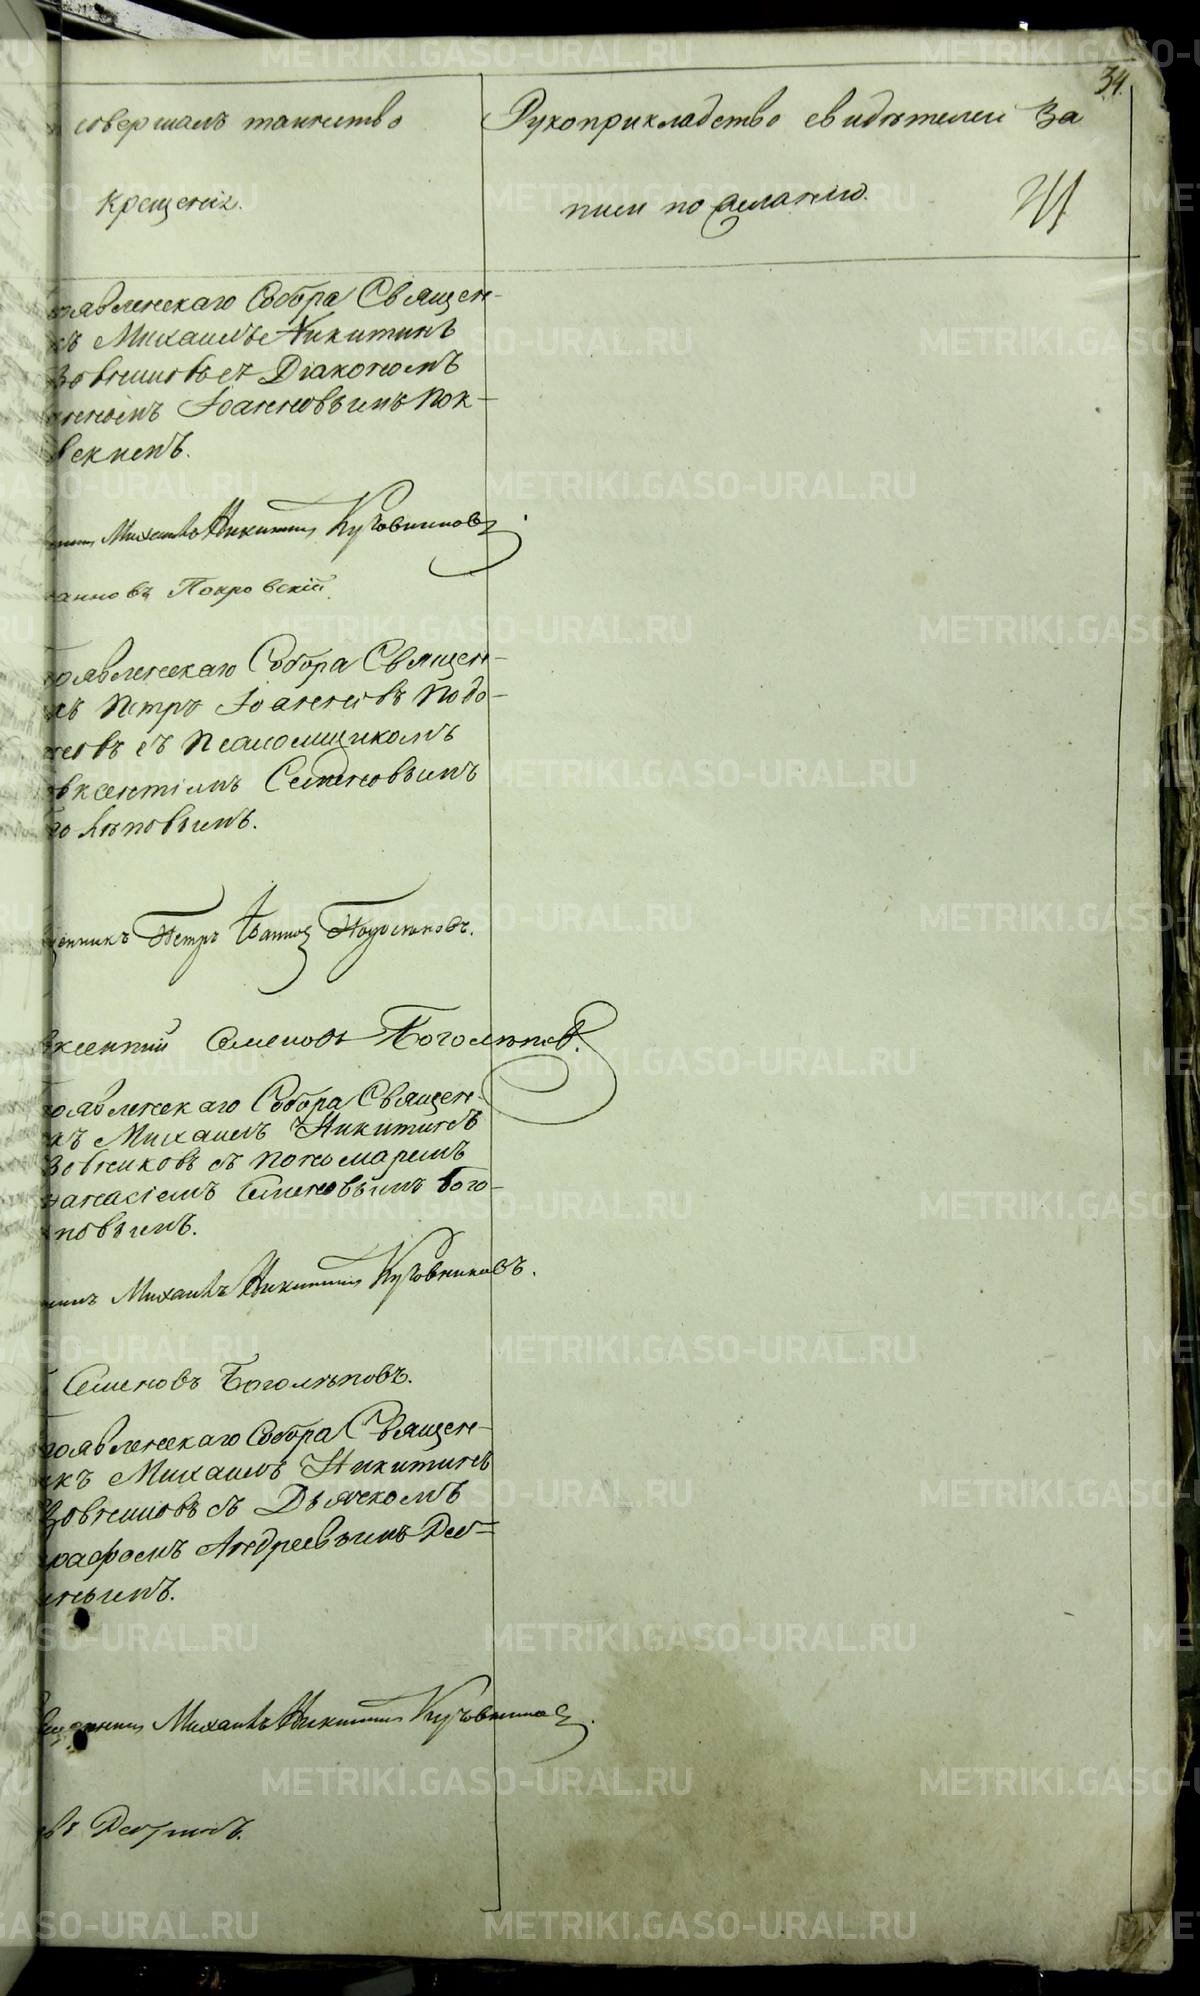 34.
совершалъ таинство
Крещенія.
Рукоприкладство свидѣтелей За
писи по желанію.
оявленскаго Собора Священ-
къ Михаилъ Никитинъ
зовниковъ съ Діакономъ
Іоанновымъ Пок-
вскимъ.
Михаилъ Никитинъ Кузовниковъ.
анновъ Покровскій.
оявленскаго Собора Священ-
къ Петръ Іоанновъ Подо-
новъ съ Псаломщикомъ
вксентіемъ Семеновымъ
голѣповымъ.
щенникъ Петръ Іоанновъ
вксентій Семеновъ Боголѣповъ.
оявленскаго Собора Священ-
къ Михаилъ Никитинъ
зовниковъ съ Пономаремъ
анасіемъ Семеновымъ Бого-
повымъ.
Михаилъ Никитинъ Кузовниковъ.
Семеновъ Боголѣповъ.
гоявленскаго Собора Священ-
икъ Михаилъ Никитинъ
зовниковъ съ Дьячкомъ
рафомъ Андреевымъ
ннымъ.
Михаилъ Никитинъ Кузовниковъ.
METRIKI.GASO-URAL.RU